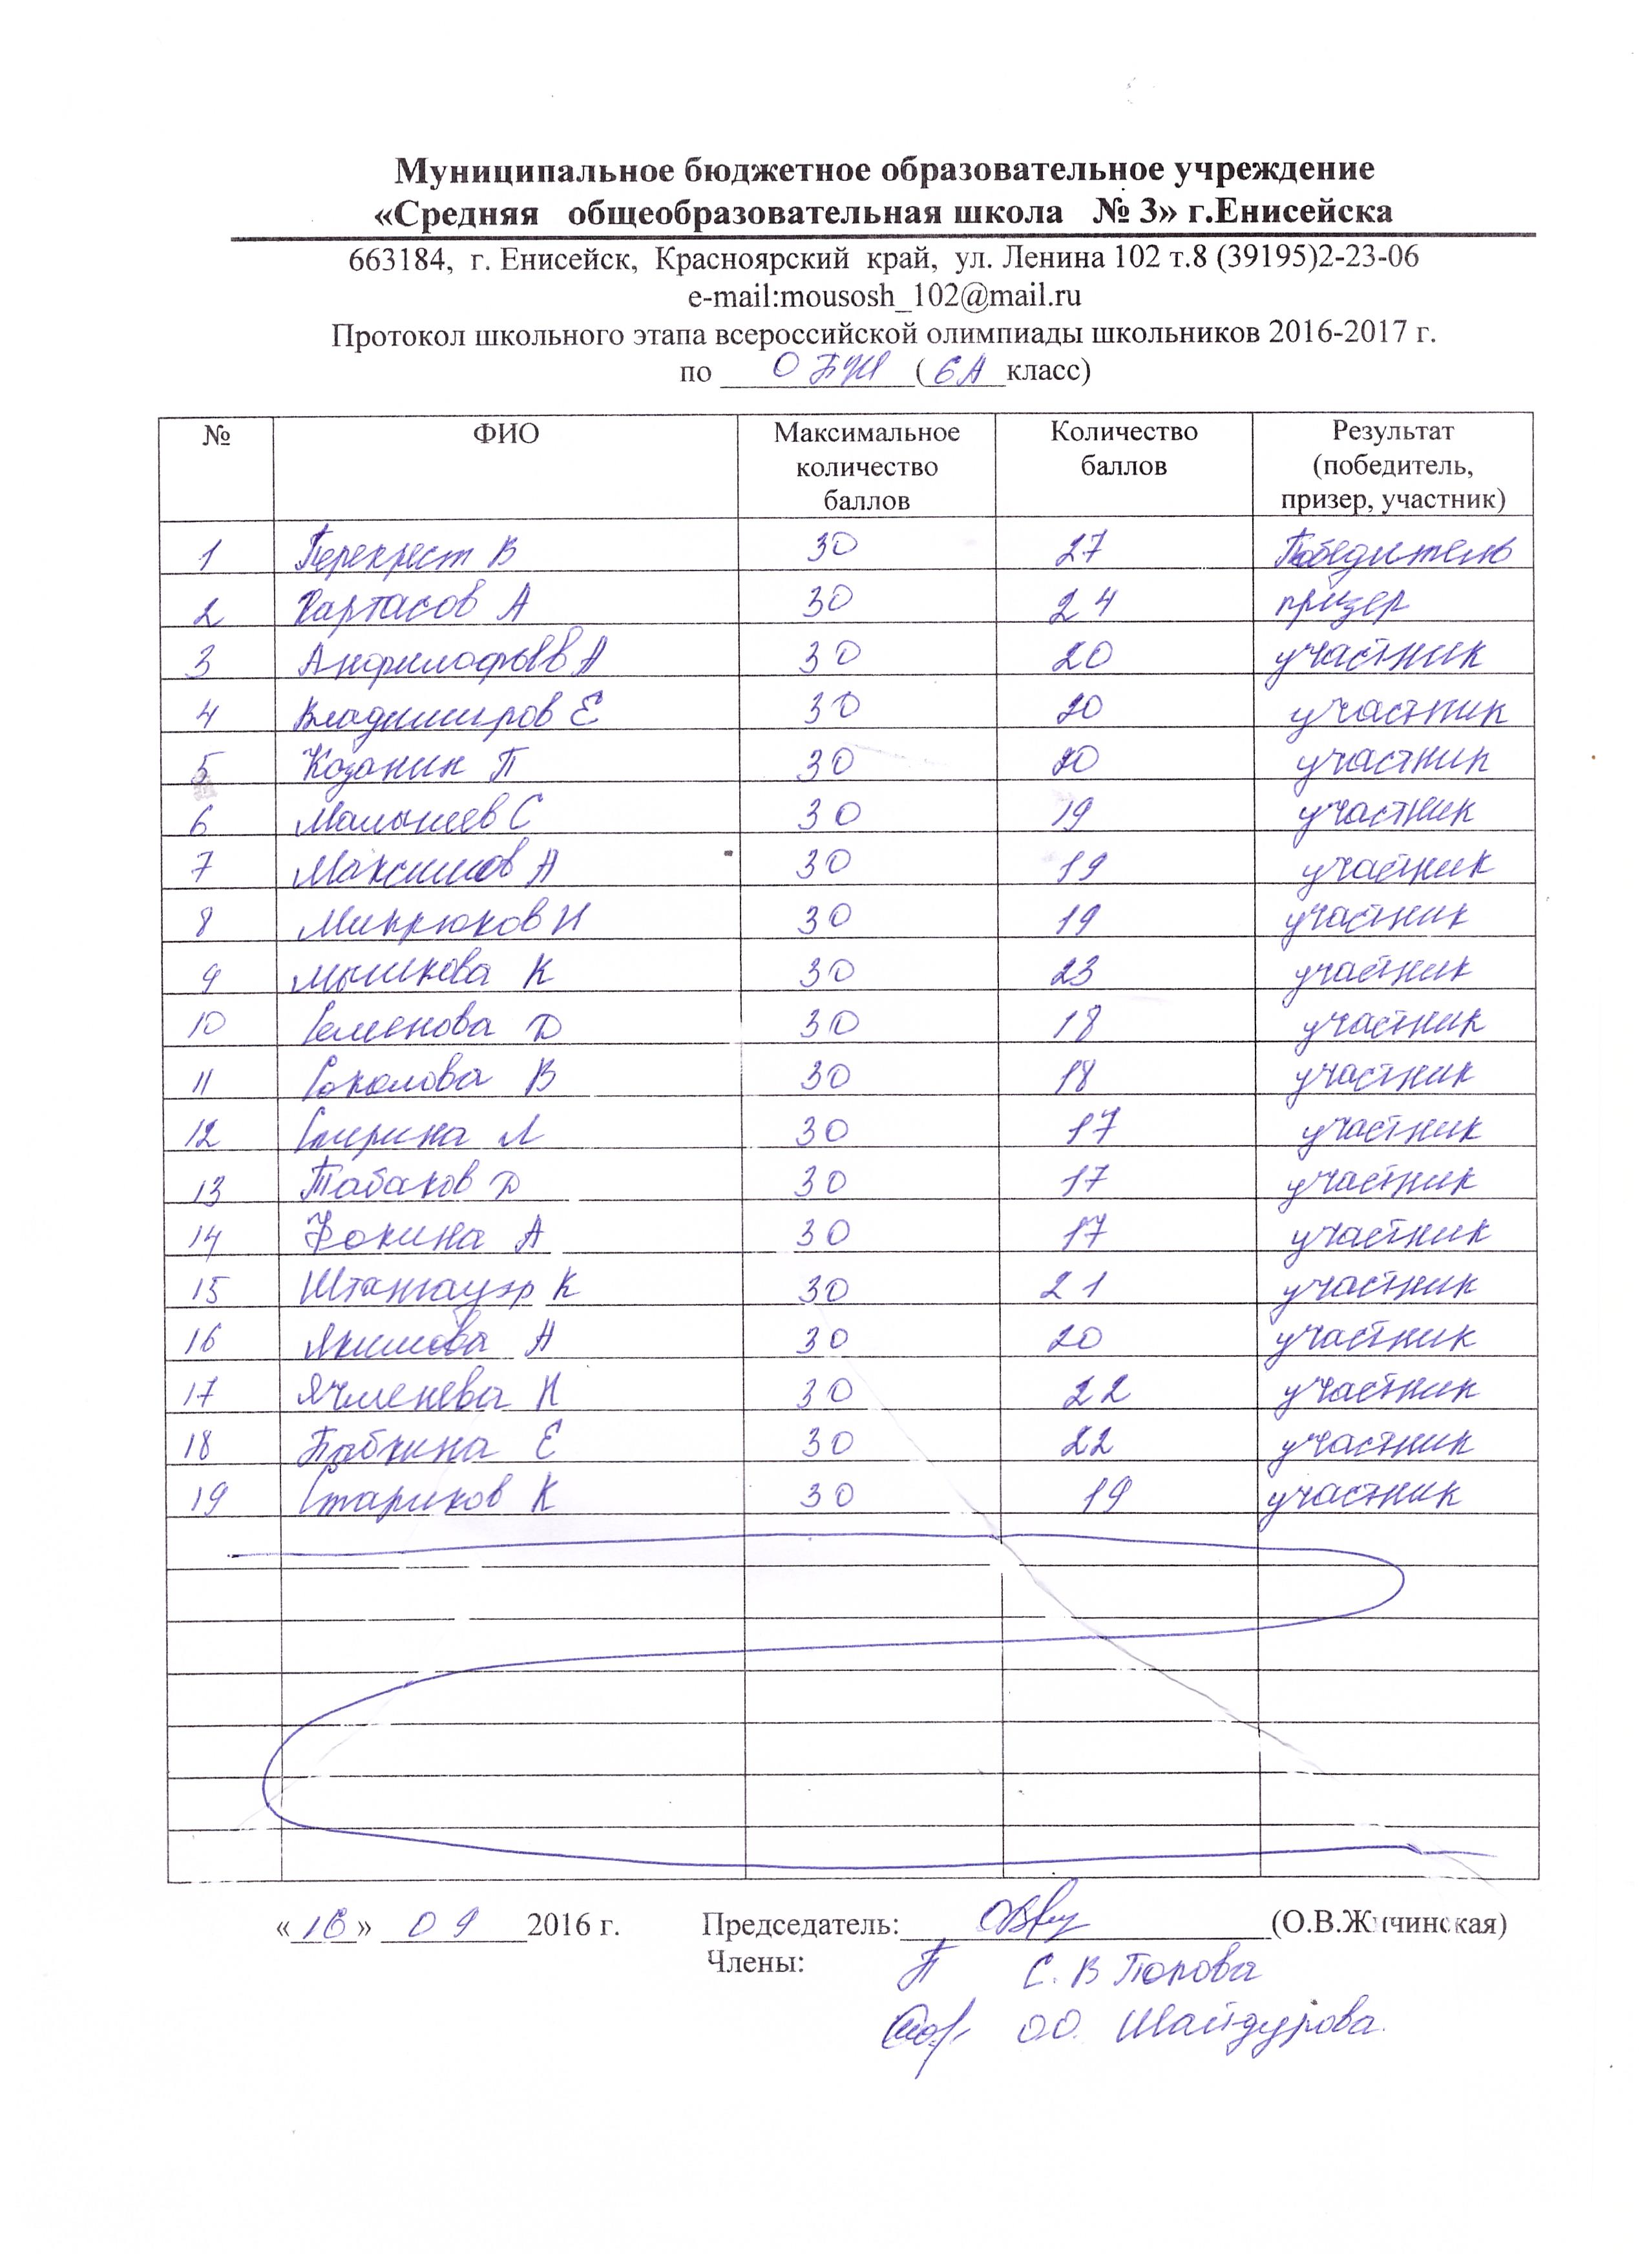 Муниципальное бюджетное образовательное учреждение
«Средняя общеобразовательная школа № 3» г.Енисейска
663184, г. Енисейск, Красноярский край, ул. Ленина 102 т.8 (39195)2-23-06
e-mail:mousosh_102@mail.ru
Протокол школьного этапа всероссийской олимпиады школьников 2016-2017 г.
по ОБЖ (6А класс)
№ ФИО Максимальное количество баллов Количество баллов Результат (победитель, призер, участник)
1 Перекрест В 30 27 Победитель
2 Картасов А 30 24 призер
3 А 30 20 участник
4 Владимиров Е 30 20 участник
5 Казанин П 30 20 участник
6 Малышев С 30 19 участник
7 Максимов А 30 19 участник
8 Микрюков И 30 19 участник
9 Мышкова К 30 23 участник
10 Семенова Д 30 18 участник
11 Соколова В 30 18 участник
12 Спирина Л 30 17 участник
13 Табаков Д 30 17 участник
14 Фокина А 30 17 участник
15 К 30 21 участник
16 Якимова А 30 20 участник
17 Ячменева Н 30 22 участник
18 Бабкина Е 30 22 участник
19 Стариков К 30 19 участник
«16» 09 2016 г. Председатель: (О.В.Жичинская)
Члены: С. В Попова
О.О. Шайдурова.